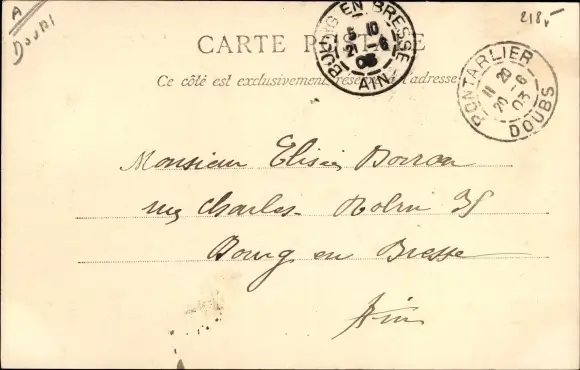 A
Doubs
218
CARTE POSTALE
Ce côté est exclusivement réservé à l'adresse
BOURG EN BRESSE
5 10
21 -6
03
AIN
PONTARLIER
11 20
20 -6
03
DOUBS
Monsieur Elisée Borron
rue Charles Robin 35
Bourg en Bresse
Ain